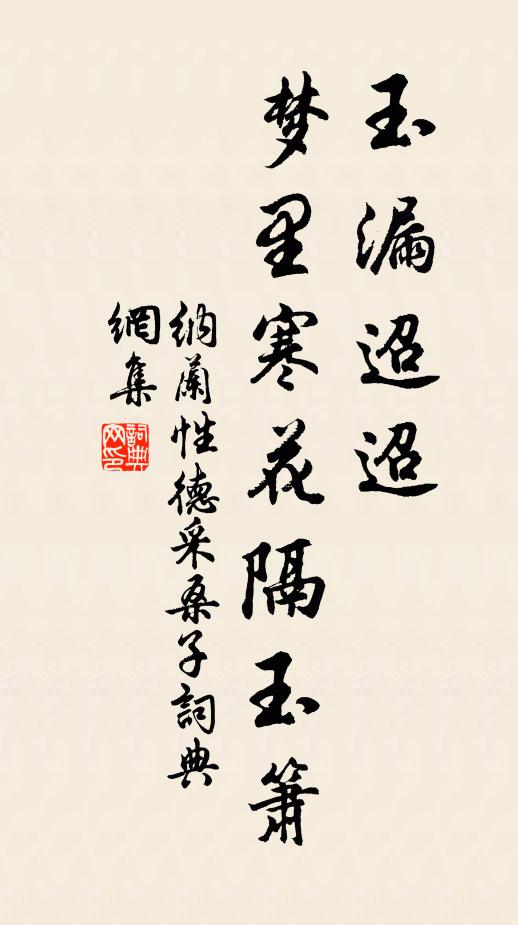 玉漏迢迢
梦里寒花隔玉箫
納蘭性德采桑子詞典
網集
詞典網印